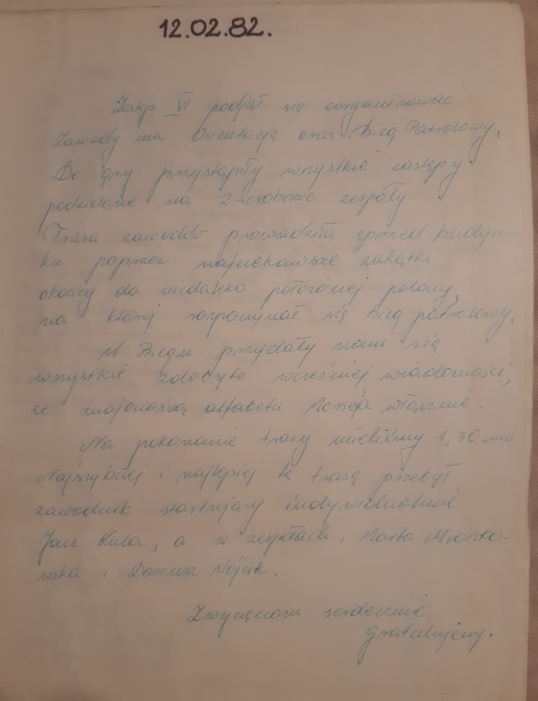 12.02.82.
Zastęp VI podjął się zorganizować
Zawody na Orientację oraz Bieg Patrolowy.
Do gry przystąpiły wszystkie zastępy
podzielone na 2-osobowe zespoły.
Trasa zawodów prowadziła sprzed budyn-
ku poprzez najciekawsze zakątki
okolicy do niedaleko położonej polany,
na której rozpoczynał się bieg patrolowy.
W Biegu przydały nam się
wszystkie zdobyte wcześniej wiadomości,
ze znajomością alfabetu Morse'a włącznie.
Na pokonanie trasy mieliśmy 1,30 min
Najszybciej i najlepiej tę trasę przebył
zawodnik startujący indywidualnie
Jacek Kula, a w zespołach, Marta Mroczko-
wska i Dariusz Wójcik.
Zwycięzcom serdecznie
gratulujemy.